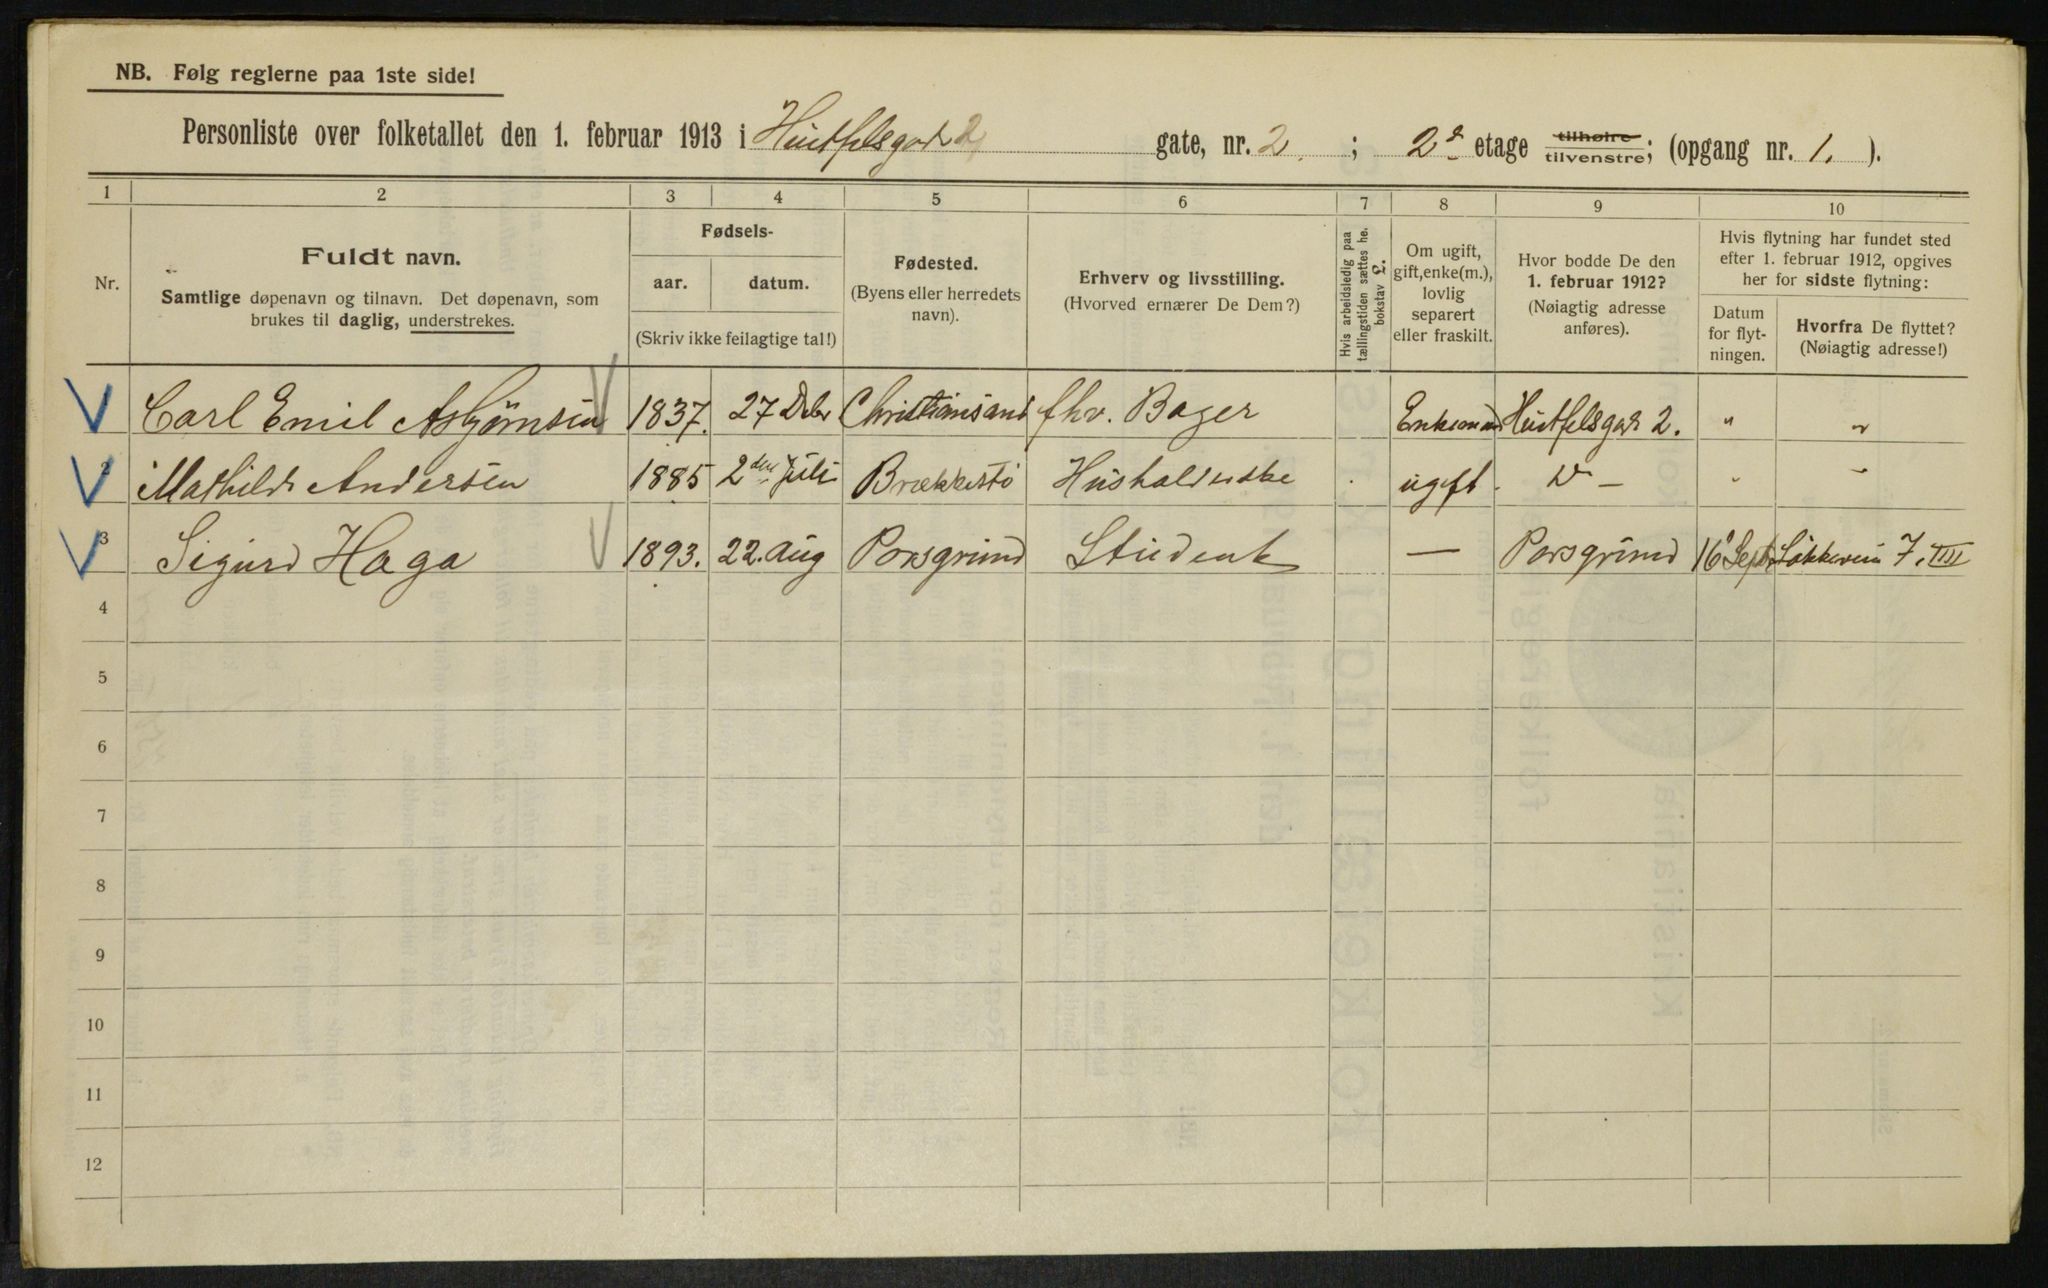 NB. Følg reglerne paa 1ste side!
Personliste over folketallet den 1. februar 1913 i Huitfelsgade 2 gate, nr. 2. ; 2d etage tilhøire tilvenstre; (opgang nr. 1. ).
1 2 3 4 5 6 7 8 9 10
Nr.
Fuldt navn.
Samtlige døpenavn og tilnavn. Det døpenavn, som
brukes til daglig, understrekes.
Fødsels-
aar. datum.
(Skriv ikke feilagtige tal!)
Fødested.
(Byens eller herredets
navn).
Erhverv og livsstilling.
(Hvorved ernærer De Dem?)
Hvis arbeidsledig paa
tællingstiden sættes he.
bokstav L.
Om ugift,
gift, enke(m.),
lovlig
separert
eller fraskilt.
Hvor bodde De den
1. februar 1912?
(Nøiagtig adresse
anføres).
Hvis flytning har fundet sted
efter 1. februar 1912, opgives
her for sidste flytning:
Datum
for flyt-
ningen.
Hvorfra De flyttet?
(Nøiagtig adresse!)
Carl Emil Asbjörnsen 1837. 27 Dcbr Christiansand fhv. Bager Enkemand Huitfelsgade 2. " "
2 Mathilde Andersen 1885 2den Juli Brækkestö Husholderske ugift. Do — " "
3 Sigurd Haga 1893. 22. Aug Porsgrund Student — Porsgrund 16 Septr Lökkevein 7. III
4
5
6
7
8
9
10
11
12